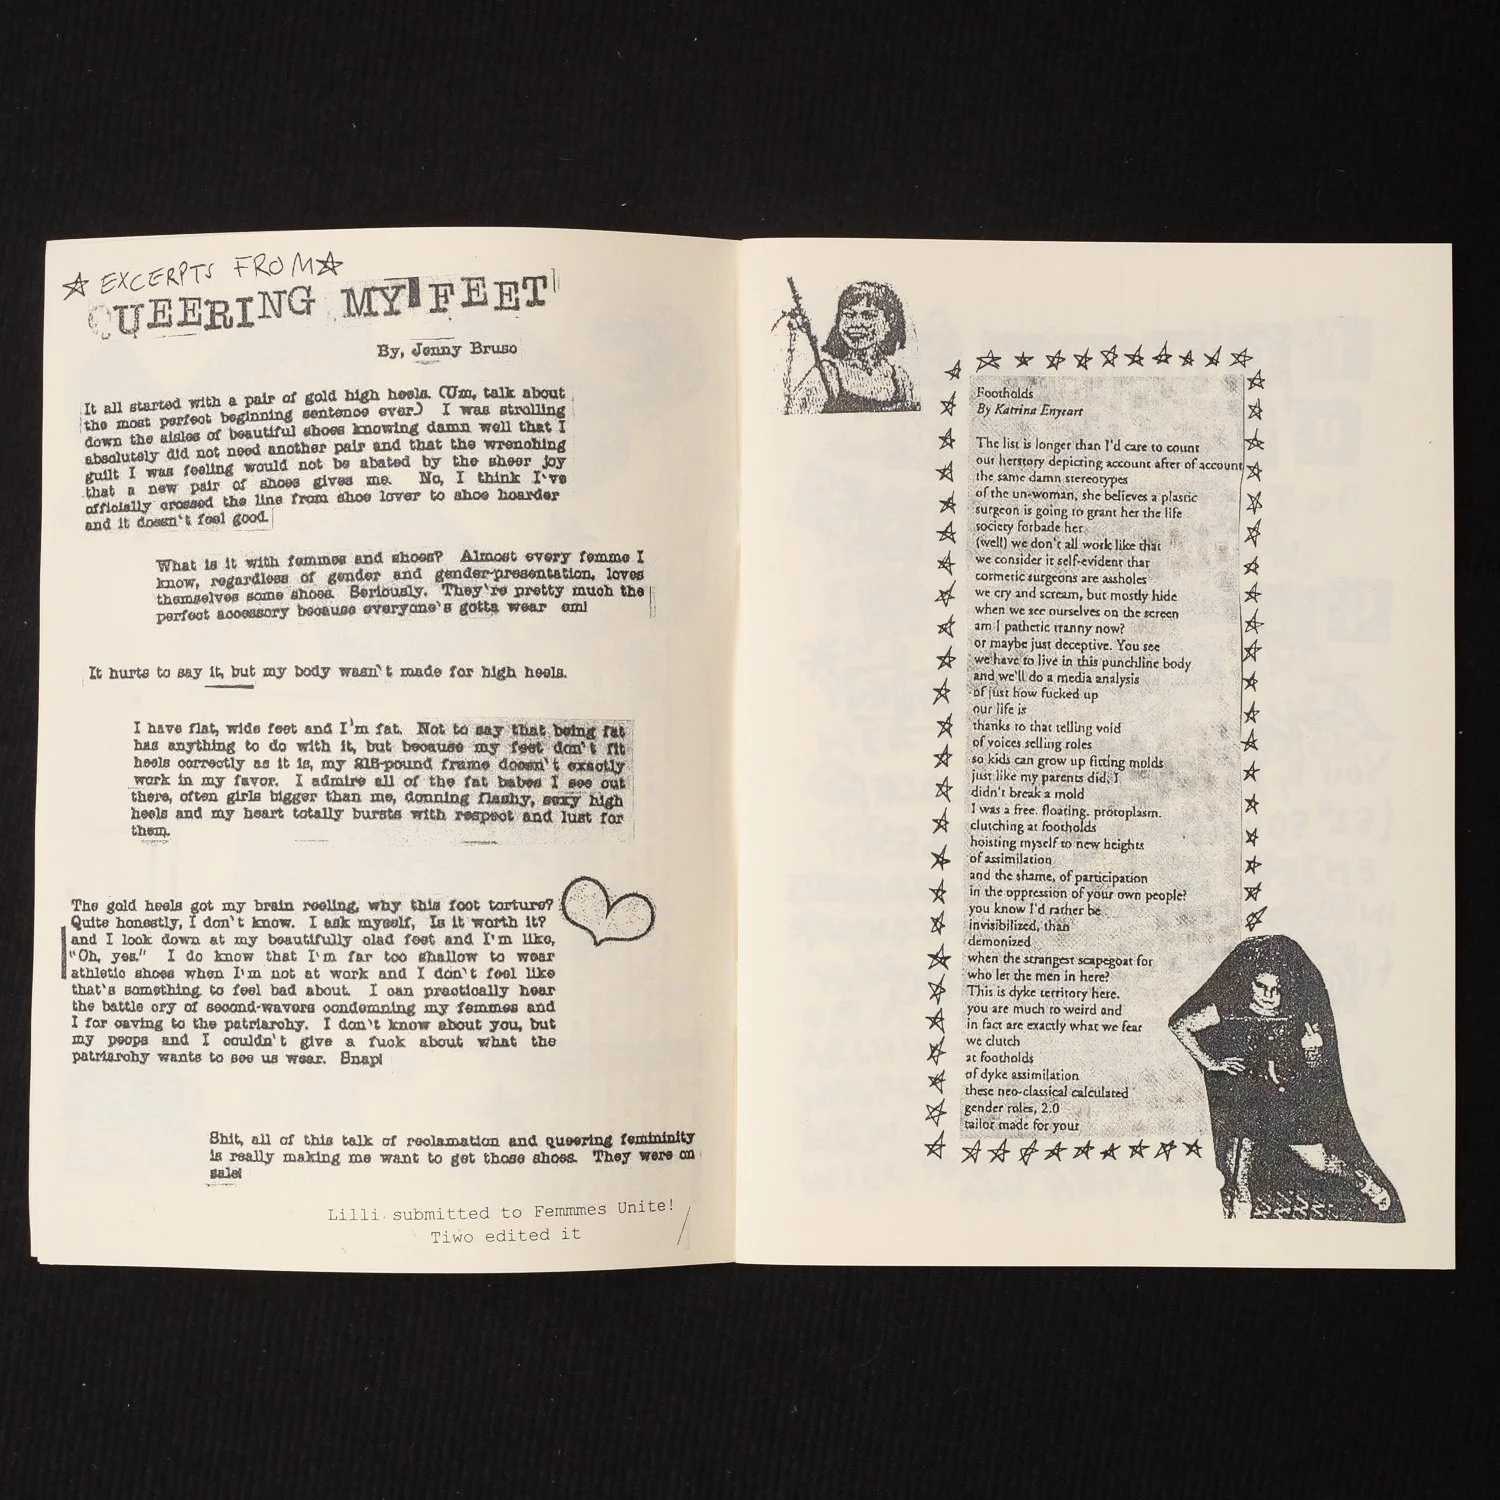 EXCERPTS FROM
QUEERING MY FEET
By, Jenny Bruso
It all started with a pair of gold high heels. (Um, talk about
the most perfect beginning sentence ever.) I was strolling
down the aisles of beautiful shoes knowing damn well that I
absolutely did not need another pair and that the wrenching
guilt I was feeling would not be abated by the sheer joy
that a new pair of shoes gives me. No, I think I've
officially crossed the line from shoe lover to shoe hoarder
and it doesn't feel good.
What is it with femmes and shoes? Almost every femme I
know, regardless of gender and gender-presentation, loves
themselves some shoes. Seriously. They're pretty much the
perfect accessory because everyone's gotta wear em!
It hurts to say it, but my body wasn't made for high heels.
I have flat, wide feet and I'm fat. Not to say that being fat
has anything to do with it, but because my feet don't fit
heels correctly as it is, my 215-pound frame doesn't exactly
work in my favor. I admire all of the fat babes I see out
there, often girls bigger than me, donning flashy, sexy high
heels and my heart totally bursts with respect and lust for
them.
The gold heels got my brain reeling, why this foot torture?
Quite honestly, I don't know. I ask myself, Is it worth it?
and I look down at my beautifully clad feet and I'm like,
"Oh, yes." I do know that I'm far too shallow to wear
athletic shoes when I'm not at work and I don't feel like
that's something to feel bad about. I can practically hear
the battle cry of second-wavers condemning my femmes and
I for caving to the patriarchy. I don't know about you, but
my peeps and I couldn't give a fuck about what the
patriarchy wants to see us wear. Snap!
Shit, all of this talk of reclamation and queering femininity
is really making me want to get those shoes. They were on
sale!
Lilli submitted to Femmmes Unite!
Tiwo edited it
Footholds
By Katrina Enyeart
The list is longer than I'd care to count
our herstory depicting account after of account
the same damn stereotypes
of the un-woman, she believes a plastic
surgeon is going to grant her the life
society forbade her
(well) we don't all work like that
we consider it self-evident that
cosmetic surgeons are assholes
we cry and scream, but mostly hide
when we see ourselves on the screen
am I pathetic tranny now?
or maybe just deceptive. You see
we have to live in this punchline body
and we'll do a media analysis
of just how fucked up
our life is
thanks to that telling void
of voices selling roles
so kids can grow up fitting molds
just like my parents did, I
didn't break a mold
I was a free. floating. protoplasm.
clutching at footholds
hoisting myself to new heights
of assimilation
and the shame, of participation
in the oppression of your own people?
you know I'd rather be
invisibilized, than
demonized
when the strangest scapegoat for
who let the men in here?
This is dyke territory here.
you are much to weird and
in fact are exactly what we fear
we clutch
at footholds
of dyke assimilation
these neo-classical calculated
gender roles, 2.0
tailor made for your